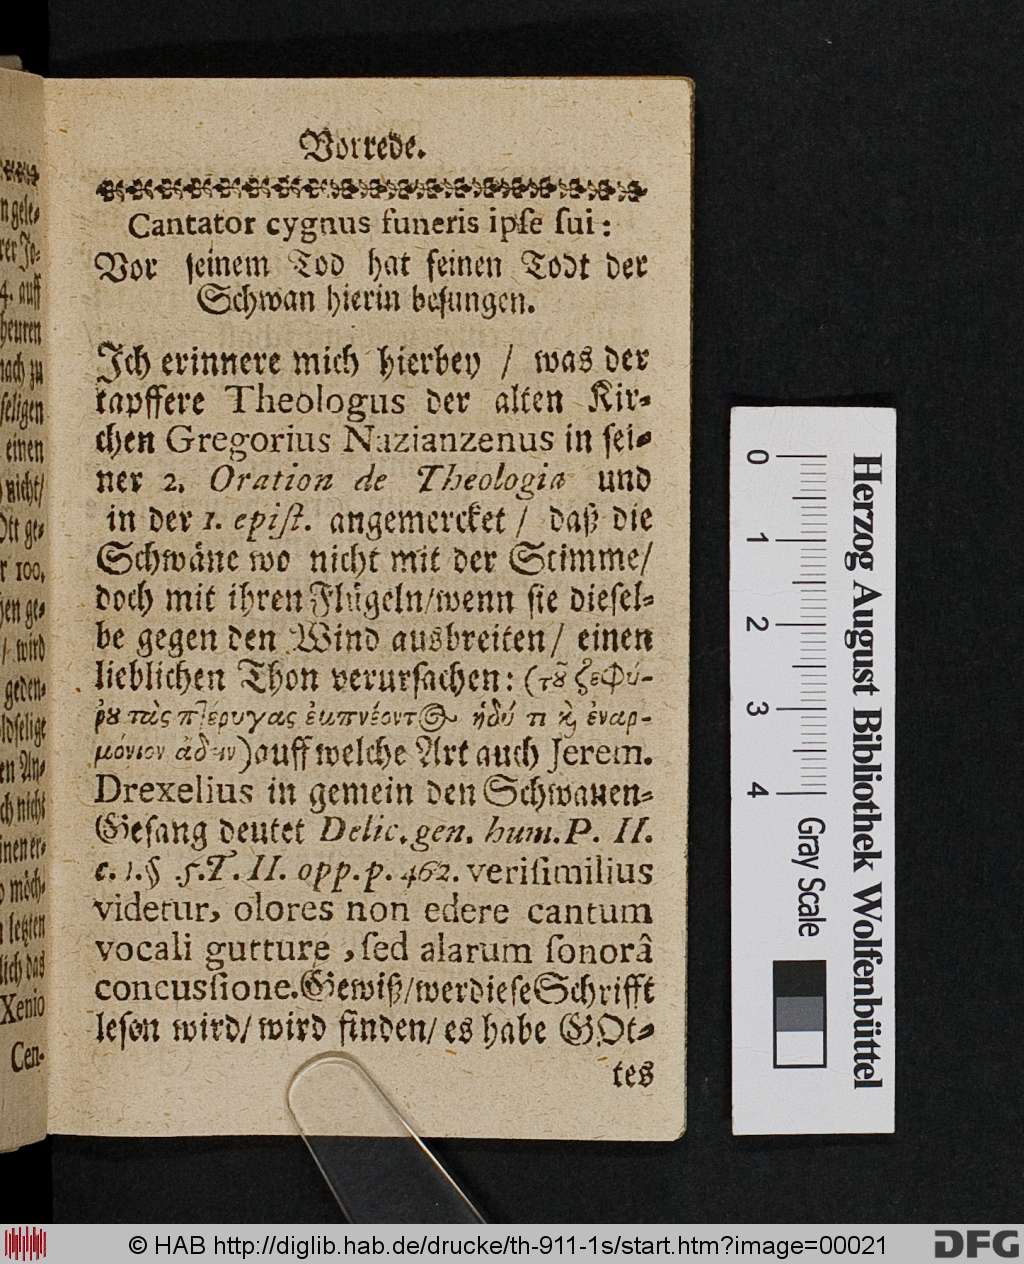 Vorrede.
Cantator cygnus funeris ipſe ſui:
Vor ſeinem Tod hat ſeinen Todt der
Schwan hierin beſungen.
Ich erinnere mich hierbey / was der
tapffere Theologus der alten Kir-
chen Gregorius Nazianzenus in ſei-
ner 2. Oration de Theologia und
in der 1. epiſt. angemercket / daß die
Schwäne wo nicht mit der Stimme/
doch mit ihren Flügeln/wenn ſie dieſel-
be gegen den Wind ausbreiten/ einen
lieblichen Thon verurſachen: (τȣ͂ ζεφύ-
ρȣ τὰς πτέρυγας ἐκπνέοντος ἡδύ τι κ̀ ἐναρ-
μόνιον ἄδειν) auff welche Art auch Jerem.
Drexelius in gemein den Schwanen-
Geſang deutet Delic. gen. hum. P. II.
c. 1. § 5. T. II. opp. p. 462. veriſimilius
videtur, olores non edere cantum
vocali gutture, ſed alarum ſonorâ
concusſione. Gewiß/wer dieſe Schrifft
leſen wird/ wird finden/ es habe GOt-
tes
ngele-
rer Jo-
4. auff
heuren
nach zu
ſeligen
einen
nicht/
Ott ge-
r 100.
hen ge-
/ wird
geden-
oldſelige
en An-
ch nicht
inen er-
o möch-
letzten
lich das
Xenio
Cen-
0 1 2 3 4
Gray Scale
Herzog August Bibliothek Wolfenbüttel
© HAB http://diglib.hab.de/drucke/th-911-1s/start.htm?image=00021
DFG